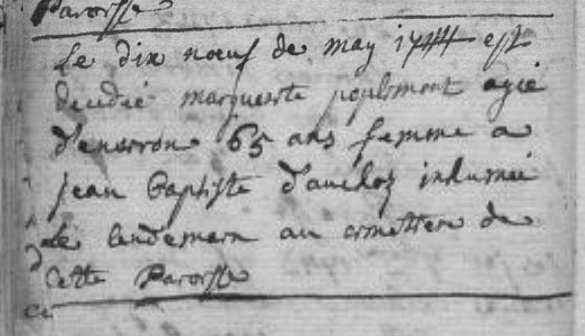 Paroisse
Le dix neuf de may 1744 est
decedée marguerite poulemont agée
d'environ 65 ans femme a
jean baptiste d'auchoz inhumée
le lendemain au cimettiere de
cette Paroisse